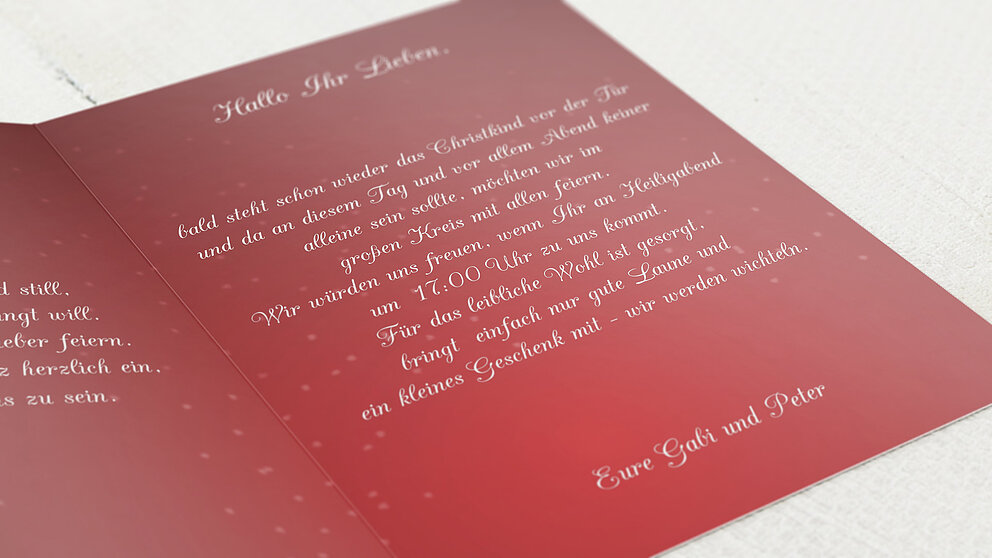 d still,
ngt will.
eber feiern.
z herzlich ein,
s zu sein.
Hallo Ihr Lieben,
bald steht schon wieder das Christkind vor der Tür
und da an diesem Tag und vor allem Abend keiner
alleine sein sollte, möchten wir im
großen Kreis mit allen feiern.
Wir würden uns freuen, wenn Ihr an Heiligabend
um 17:00 Uhr zu uns kommt.
Für das leibliche Wohl ist gesorgt,
bringt einfach nur gute Laune und
ein kleines Geschenk mit - wir werden wichteln.
Eure Gabi und Peter